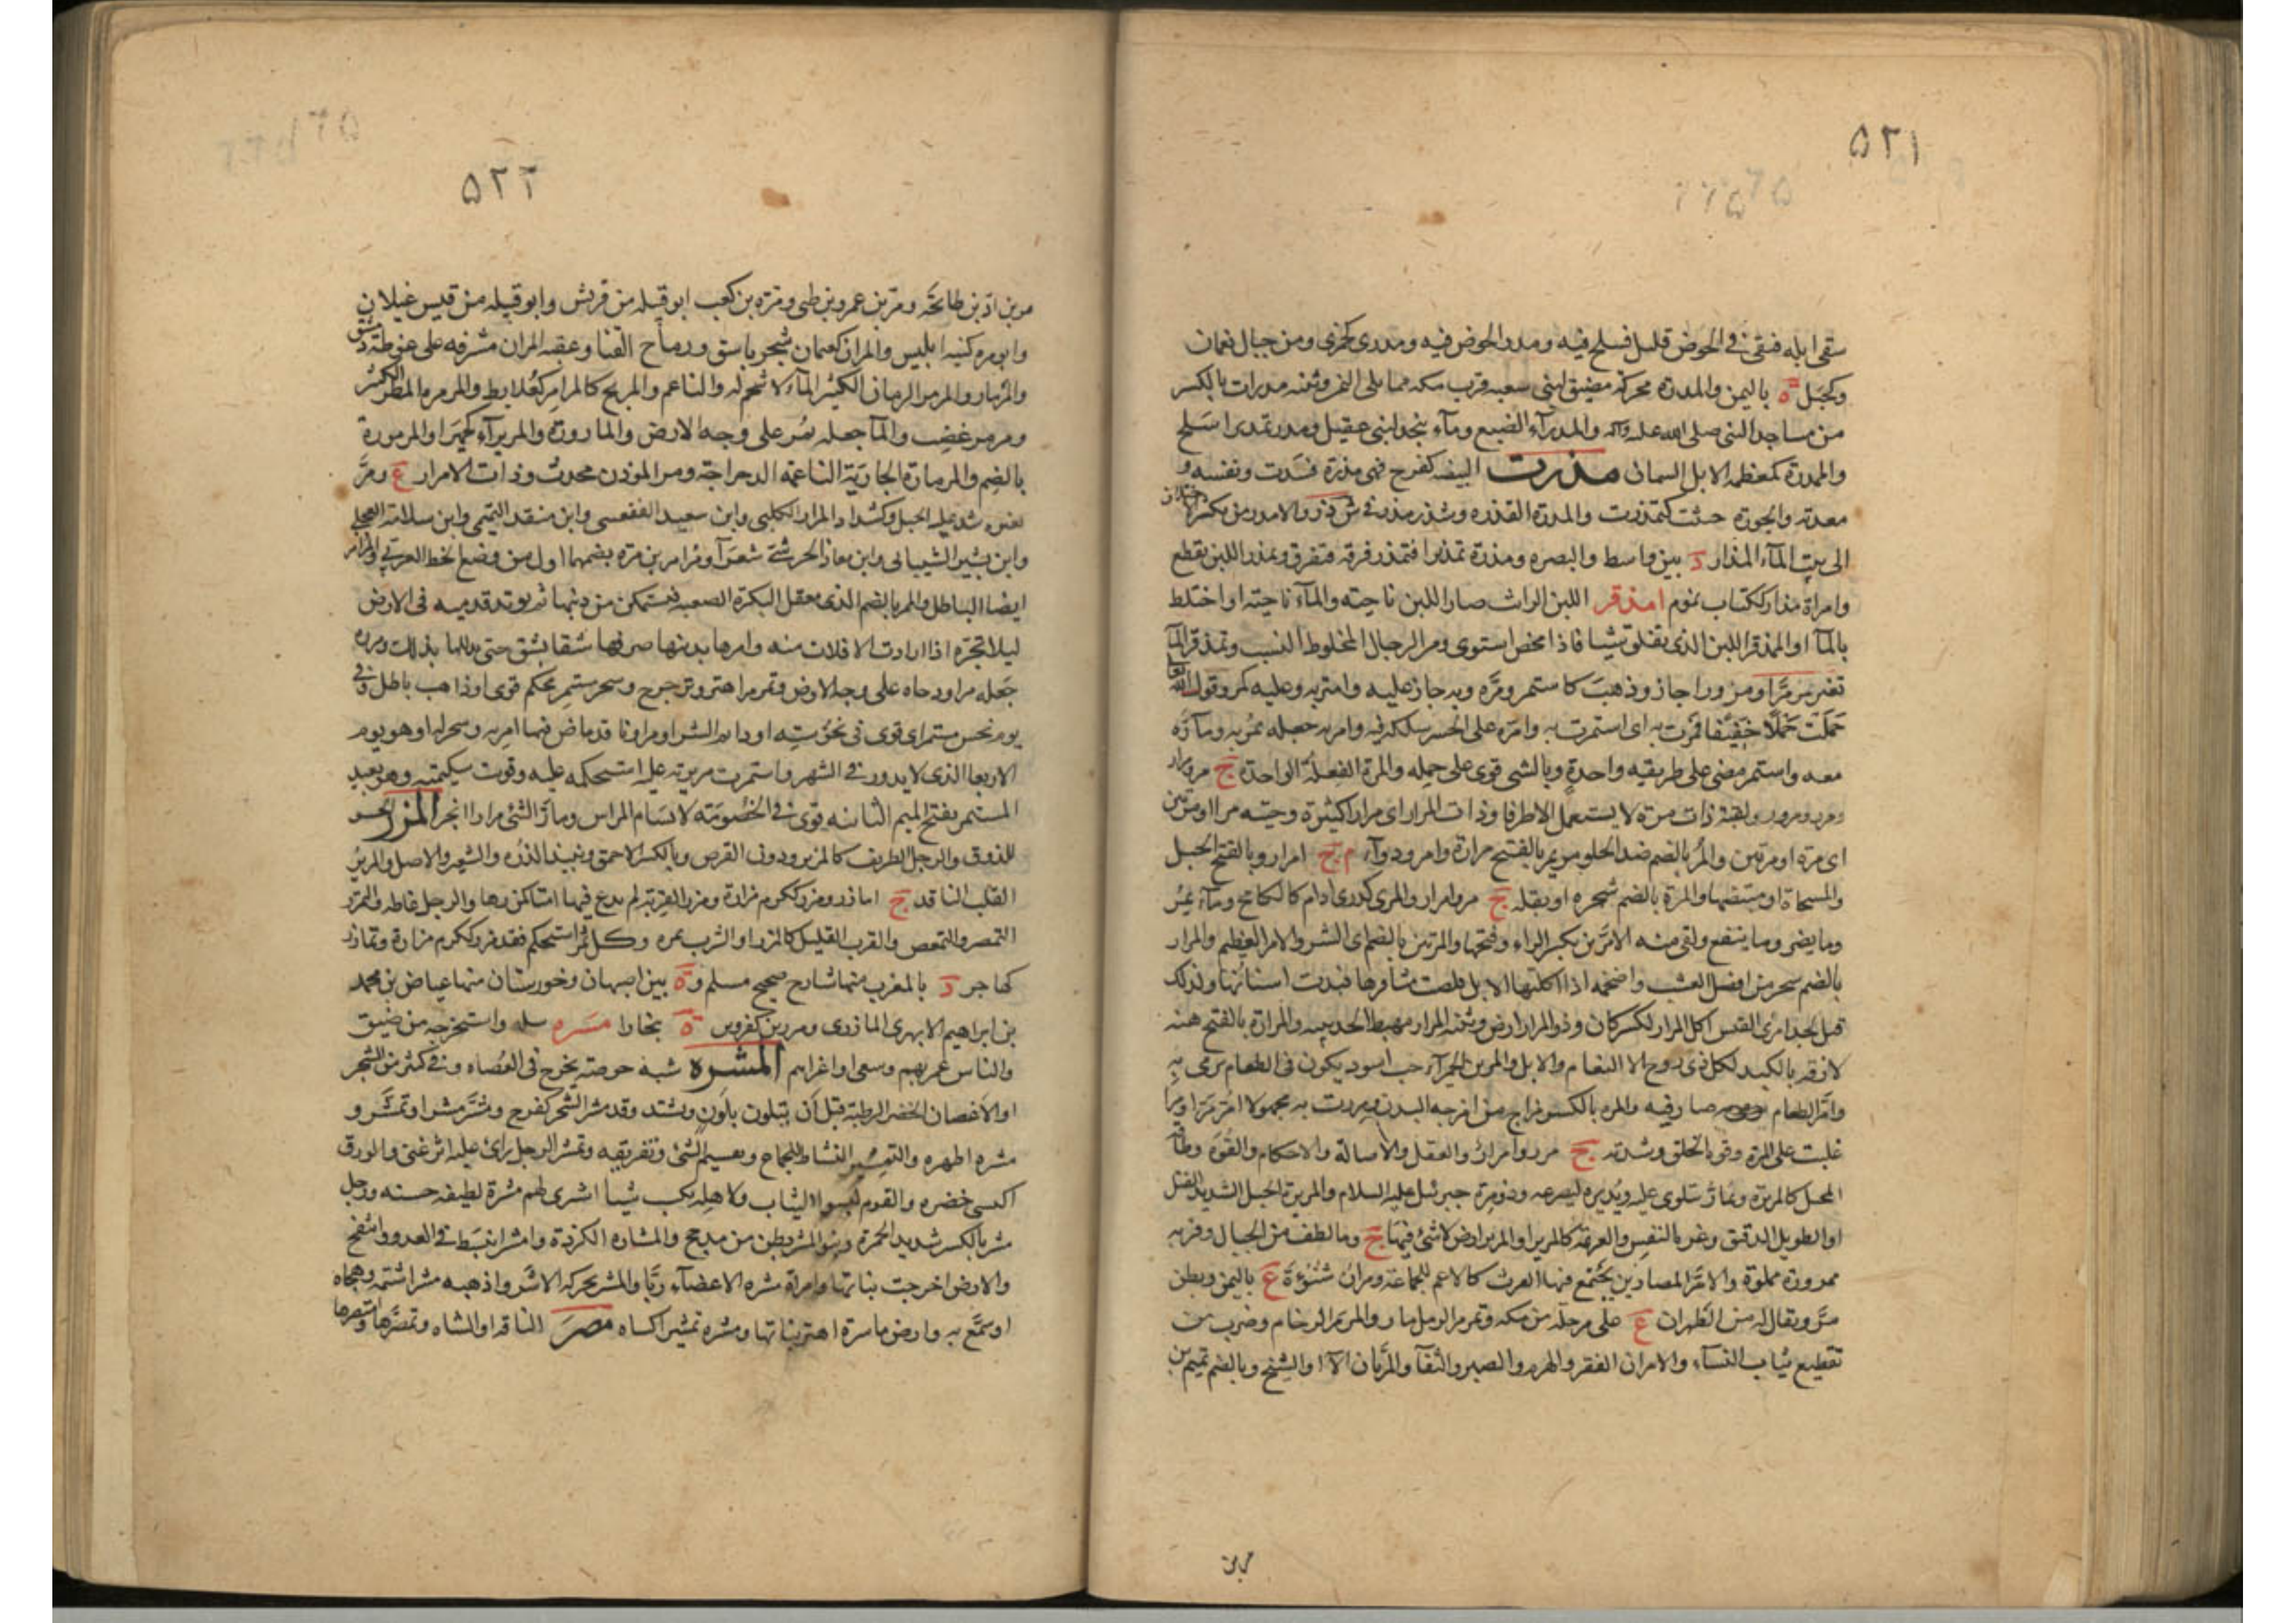 ٥٢١
سقى ابله فبقى فى الحوض قليل فسلح فيه ومدر الحوض فيه ومدرى كجمزى ومن جبال نعمان
وكجبل ة باليمن والمدرة محركة مضيق لبنى شعبه قرب مكه مما يلى اليمن وثنيه مدرات بالكسر
من مساجد النبى صلى الله عليه وآله والمدرآء الضبع ومآء بنجد لبنى عقيل ومدر تمديرا سلح
والممدرة كمعظمه الابل السمان مذرت البيضه كفرح فهى مذرة فسدت ونفسه و
معدته والجوزه خبثت كتمذرت والمذرة القذره وشذر مذر فى ش ذ ر والامذر من يكثر الاختلاف
الى بيت المآء المذار د بين واسط والبصره ومذرة تمذيرا فتمذر فرقه فتفرق وتمذر اللبن تقطع
وامرأة مذار ككتاب نموم امذقر اللبن الرائب صار اللبن ناحيته والمآء ناحيته او اختلط
بالمآ او الممذقر اللبن الذى تفلق شيئا فاذا مخض استوى ومن الرجال المخلوط النسب وتمذقر المآ
تغير مر مرًّا ومرورا جاز وذهب كاستمر ومره وبه جاز عليه وامتر به وعليه كمر وقول الله تعا
حملت حملا خفيفا فمرت به اى استمرت به وامره على الجسر سلكه فيه وامر به جعله يمر به ومآره
معه واستمر مضى على طريقه واحدة وبالشى قوى على حمله والمرة الفعلة الواحدة ج مر ومرار
ومرر ومرور ولقيته ذات مرة لا يستعمل الا ظرفا وذات المرار اى مرارا كثيرة وجئته مرا او مرين
اى مره او مرتين والمر بالضم ضد الحلو مر يمر بالفتح مرارة وامر ودوآء م ج امرار وبالفتح الحبل
والمسحاة او مقبضها والمرة بالضم شجره او بقله ج مر وامرار والمرى كدرى ادام كالكامخ وما يمر
وما يضر وما ينفع ولقى منه الامرين بكسر الراء وفتحها والمرتين بالضم اى الشر والامر العظيم والمرار
بالضم شجر من افضل العشب واضخمه اذا اكلتها الابل قلصت مشافرها فبدت اسنانها ولذلك
قيل لجد امرئ القيس اكل المرار لكشر كان به وذو المرار ارض وثنيه المرار مهبط الحديبيه والمرارة بالفتح هنه
لازقه بالكبد لكل ذى روح الا النعام والابل والمريرآء حب اسود يكون فى الطعام يرمى به
وامر الطعام صار فيه والمره بالكسر مزاج من امزجه البدن ومررت به مجهولا امر مرا ومرة
غلبت على المرة وقوة الخلق وشدته ج مرر وامرار والعقل والاصالة والاحكام والقوة وطاقة
الحبل كالمريرة ويماره يتلوى عليه ويديره ليصرعه وذو مرة جبرئيل عليه السلام والمريرة الحبل الشديد الفتل
او الطويل الدقيق وعزة النفس والعزيمه كالمرير او المرير ارض لا شئ فيها ج وما لطف من الحبال وقربه
ممرورة مملوة والامر المصارين يجتمع فيها الفرث كالاعم للجماعة ومران شنوءة ع باليمن وبطن
مر ويقال له مر الظهران ع على مرحلة من مكه وتمرمر الرمل مار والمرمر الرخام وضرب من
تقطيع ثياب النسآء والامران الفقر والهرم والصبر والثفآ والمريان الآلآ والشيح وبالضم تميم بن
مر بن
٥٢٢
مر بن اد بن طابخة ومر بن عمرو بن طى ومره بن كعب ابو قبيله من قريش وابو قبيله من قيس غيلان
وابو مره كنيه ابليس والمران كعثمان شجر باسق ورماح القنا وعقبه المران مشرفه على غوطة دمشق
والمرمار والمرمر الرمان الكثير المآء لا شحم له والناعم والمريح كالمرامر كعلابط والمرمره المطر الكثير
ومرمر غضب والمآ جعله يمر على وجه الارض والمارورة والمريرآء كحميرا والمرمورة
بالضم والمرمارة الجارية الناعمة الدحراجة ومر المؤذن محدث وذات الامرار ع ومر
بعيره شد عليه الحبل وكشداد المرار الكلبى وابن سعيد الفقعسى وابن منقذ التيمى وابن سلامة العجلى
وابن بشير الشيبانى وابن معاذ الحرشى شعرآ ومرامر بن مره بضمهما اول من وضع الخط العربى والمرامر
ايضا الباطل والممر بالضم الذى يعقل البكرة الصعبه فيستمكن من ذنبها ثم يوتد قدميه فى الارض
ليلا تجره اذا ارادت الافلات منه وامرها بذنبها صرفها شقا بشق حتى يذللها بذلك ومرره
جعله مرا ودحاه على وجه الارض وتمرمر اهتز وترجرج وسحر مستمر محكم قوى او ذاهب باطل وفى
يوم نحس مستمر اى قوى فى نحوسته او دائم الشر او مر او نافذ ماض فيما امر به وسحر له او هو يوم
الاربعا الذى لا يدور فى الشهر واستمرت مريرته عليه استحكمه عليه وقوت شكيمته وهو بعيد
المستمر بفتح الميم الثانيه قوى فى الخصومه لا يسأم المراس ومار الشئ مرارا انجر المزر الحسو
للذوق والرجل الظريف كالمزير ودون القرص وبالكسر الاحمق ونبيذ الذره والشعير والاصل والمزير
القلب النافذ ج امازر ومزر ككرم مزارة ومزر القربة لم يدع فيها امتا كمزرها والرجل غاظه والتمزر
التمصر والتمصص والقرب القليل كالمزر او الشرب بمره وكل ثمر استحكم فقد مزر ككرم مزارة وتمازر
كهاجر د بالمغرب منها شارح صحيح مسلم وة بين اصبهان وخورستان منها عياض بن محمد
بن ابراهيم الابهرى المازرى ومزرين كقزوين ة بخارا مسره سله واستخرجه من ضيق
والناس غمر بهم وسعى او اغراهم المشره شبه خوصة يخرج فى العضاه وفى كثير من الشجر
او الاغصان الخضر الرطبة قبل ان يتلون بلون ويشتد وقد مشر الشجر كفرح ومشر مشرا وتمشر و
مشره اظهره والتمشير النشاط للجماع وتقسيم الشئ وتفريقه وتمشر الرجل رأى عليه اثر غنى والورق
اكتسى خضره والقوم لبسوا الثياب ولاهله يكسب شيئا اشترى لهم مشرة لطيفه حسنه ورجل
مشر بالكسر شديد الحمرة وبنو المشر بطن من مذحج والمشاره الكردة وامشر انبسط فى العدو وانتفخ
والارض اخرجت نباتها وامرأة مشره الاعضآء ريا والمشر محركه الاشر واذهبه مشرا شتمه وهجاه
او سمع به وارض ماشرة اهتز نباتها ومشره تمشيرا كساه مصر الناقه او الشاه وتمصرها وامتصرها